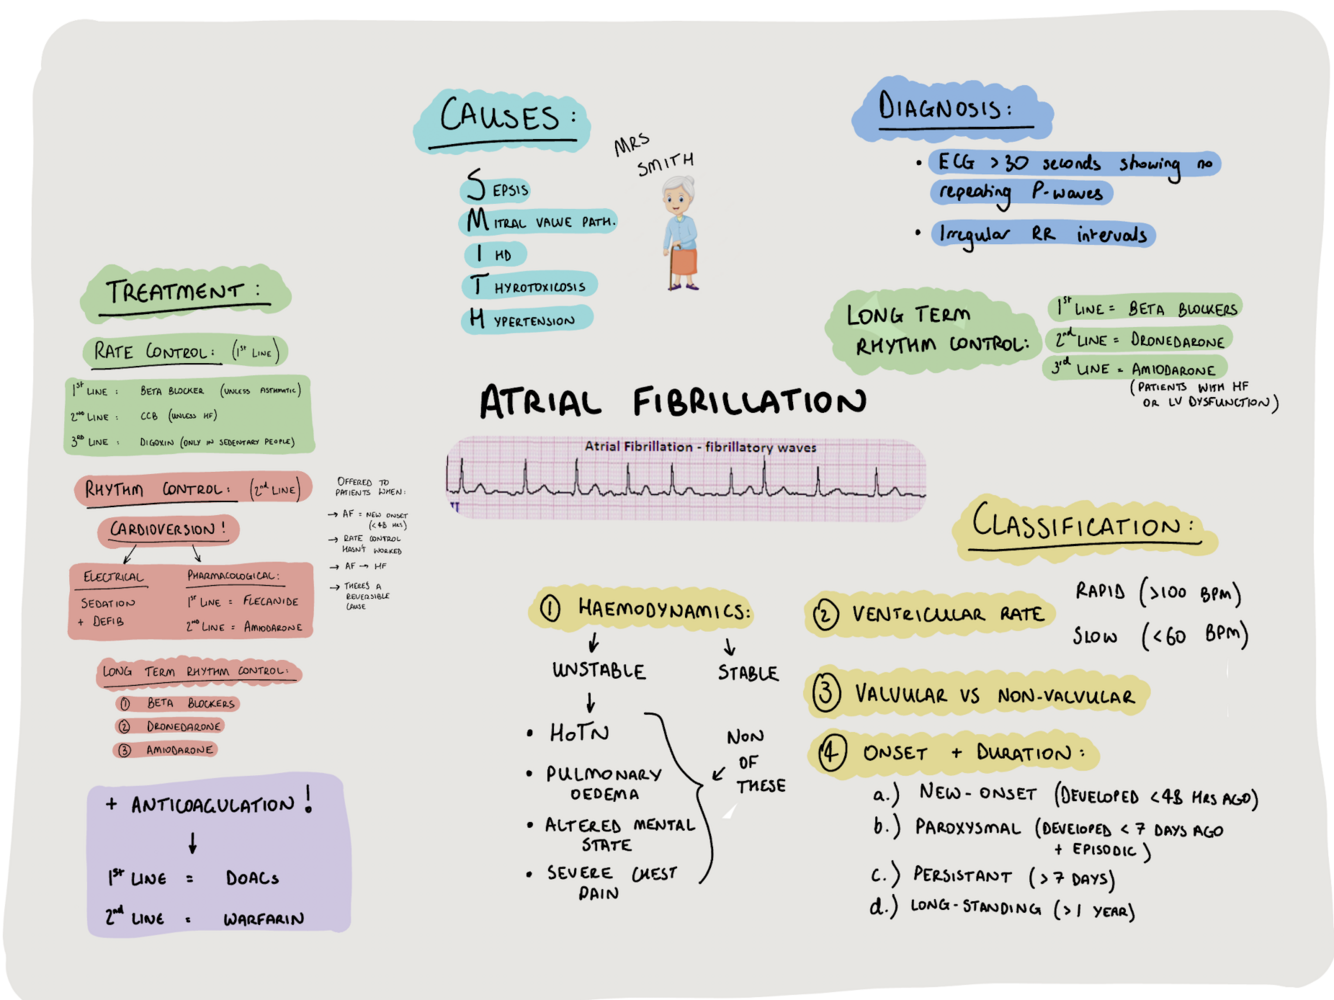 CAUSES:
MRS
SMITH
SEPSIS
MITRAL VALVE PATH.
IHD
THYROTOXICOSIS
HYPERTENSION
DIAGNOSIS:
• ECG >30 seconds showing no
repeating P-waves
• Irregular RR intervals
LONG TERM
RHYTHM CONTROL:
1st LINE = BETA BLOCKERS
2nd LINE = DRONEDARONE
3rd LINE = AMIODARONE
(PATIENTS WITH HF
OR LV DYSFUNCTION)
TREATMENT:
RATE CONTROL: (1st LINE)
1st LINE: BETA BLOCKER (UNLESS ASTHMATIC)
2nd LINE: CCB (UNLESS HF)
3rd LINE: DIGOXIN (ONLY IN SEDENTARY PEOPLE)
RHYTHM CONTROL: (2nd LINE)
CARDIOVERSION!
ELECTRICAL
SEDATION
+ DEFIB
PHARMACOLOGICAL:
1st LINE = FLECANIDE
2nd LINE = AMIODARONE
OFFERED TO
PATIENTS WHEN:
→ AF = NEW ONSET
(<48 HRS)
→ RATE CONTROL
HASN'T WORKED
→ AF → HF
→ THERES A
REVERSIBLE
CAUSE
LONG TERM RHYTHM CONTROL:
① BETA BLOCKERS
② DRONEDARONE
③ AMIODARONE
+ ANTICOAGULATION!
↓
1st LINE = DOACs
2nd LINE = WARFARIN
ATRIAL FIBRILLATION
Atrial Fibrillation - fibrillatory waves
II
CLASSIFICATION:
① HAEMODYNAMICS:
UNSTABLE
STABLE
• HoTN
• PULMONARY
OEDEMA
• ALTERED MENTAL
STATE
• SEVERE CHEST
PAIN
NON
OF
THESE
② VENTRICULAR RATE
RAPID (>100 BPM)
SLOW (<60 BPM)
③ VALVULAR VS NON-VALVULAR
④ ONSET + DURATION:
a.) NEW-ONSET (DEVELOPED <48 HRS AGO)
b.) PAROXYSMAL (DEVELOPED < 7 DAYS AGO
+ EPISODIC)
c.) PERSISTANT (>7 DAYS)
d.) LONG-STANDING (>1 YEAR)